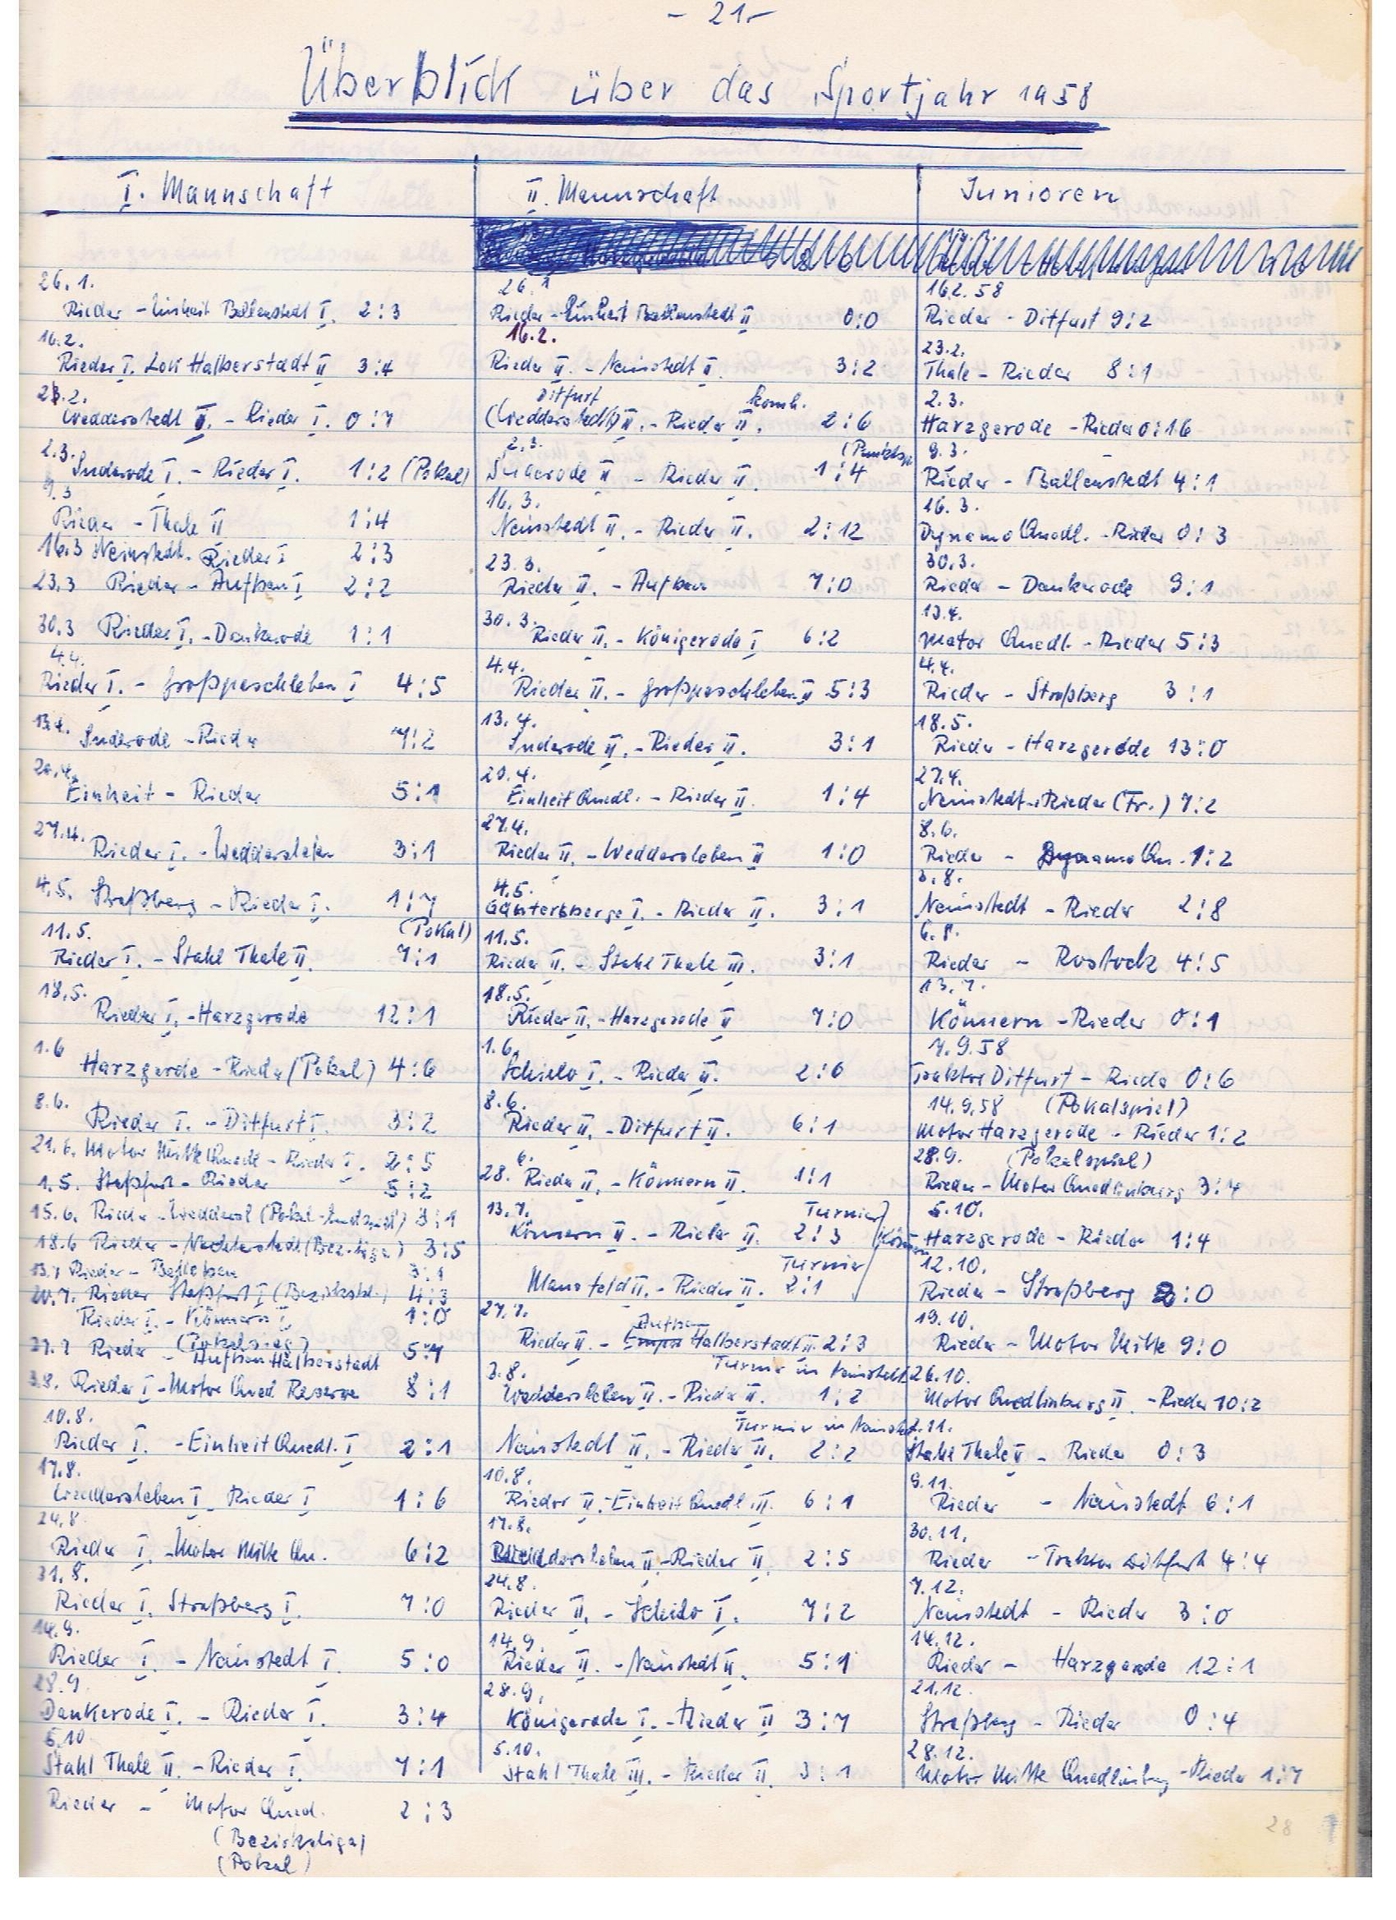 - 21 -
Überblick über das Sportjahr 1958
I. Mannschaft
26.1.
Rieder - Einheit Ballenstedt I. 2:3
16.2.
Rieder I. Lok Halberstadt II 3:4
23.2.
Wedderstedt II. - Rieder I. 0:7
2.3.
Suderode I. - Rieder I. 1:2 (Pokal)
9.3
Rieder - Thale II 1:4
16.3 Neinstedt. Rieder I 2:3
23.3 Rieder - Aufbau I 2:2
30.3 Rieder I. - Dankerode 1:1
4.4.
Rieder I. - Großpaschleben I 4:5
13.4.
Suderode - Rieder 7:2
20.4.
Einheit - Rieder 5:1
27.4.
Rieder I. - Weddersleben 3:1
4.5. Straßberg - Rieder I. 1:7
11.5. (Pokal)
Rieder I. - Stahl Thale II. 7:1
18.5.
Rieder I. - Harzgerode 12:1
1.6
Harzgerode - Rieder (Pokal) 4:6
8.6.
Rieder I. - Ditfurt I. 3:2
21.6. Motor Mitte Quedl - Rieder I. 2:5
1.5. Staßfurt - Rieder 5:2
15.6. Rieder - Weddersl (Pokal-Endspiel) 3:1
18.6 Rieder - Nachterstedt (Bez.-liga) 3:5
13.7 Rieder - 3:1
20.7. Rieder Staßfurt I (Bezirkskl.) 4:3
Rieder I. - Könnern I 1:0
(Pokalsieg)
27.7 Rieder - Aufbau Halberstadt 5:1
3.8. Rieder I - Motor Qued Reserve 8:1
10.8.
Rieder I. - Einheit Quedl. I 2:1
17.8.
Weddersleben I - Rieder I 1:6
24.8
Rieder I. - Motor Mitte Qu. 6:2
31.8.
Rieder I. Straßberg I. 7:0
14.9.
Rieder I. - Neinstedt I. 5:0
28.9.
Dankerode I. - Rieder I. 3:4
5.10
Stahl Thale II. - Rieder I. 7:1
Rieder - Motor Qued. 2:3
(Bezirksliga)
(Pokal)
II. Mannschaft
26.1
Rieder - Einheit Ballenstedt II 0:0
16.2.
Rieder II. - Neinstedt II. 3:2
Ditfurt komb.
(Wedderstedt) II. - Rieder II. 2:6
2.3. (Punktsp.
Suderode II - Rieder II. 1:4
16.3.
Neinstedt II. - Rieder II. 2:12
23.3.
Rieder II. - Aufbau 7:0
30.3.
Rieder II. - Königerode I 6:2
4.4.
Rieder II. - Großpaschleben II 5:3
13.4.
Suderode II. - Rieder II. 3:1
20.4.
Einheit Quedl. - Rieder II. 1:4
27.4.
Rieder II. - Weddersleben II 1:0
4.5.
Güntersberge I. - Rieder II. 3:1
11.5.
Rieder II. - Stahl Thale III. 3:1
18.5.
Rieder II. - Harzgerode II 7:0
1.6.
Schielo I. - Rieder II. 2:6
8.6.
Rieder II. - Ditfurt II. 6:1
28.6. Rieder II. - Könnern II. 1:1
13.7. Turnier
Könnern II. - Rieder II. 2:3 (Könnern
Turnier
Mansfeld II. - Rieder II. 2:1
27.7. Aufbau
Rieder II. - Empor Halberstadt II 2:3
3.8. Turnier in Neinstedt
Weddersleben II. - Rieder II. 1:2
Turnier in Neinstedt
Neinstedt II. - Rieder II. 2:2
10.8.
Rieder II. - Einheit Quedl III. 6:1
17.8.
Weddersleben II - Rieder II 2:5
24.8.
Rieder II. - Schielo I. 7:2
14.9.
Rieder II. - Neinstedt II. 5:1
28.9.
Königerode I. - Rieder II 3:7
5.10.
Stahl Thale III. - Rieder II. 3:1
Junioren
16.2.58
Rieder - Ditfurt 9:2
23.2.
Thale - Rieder 8:1
2.3.
Harzgerode - Rieder 0:16
9.3.
Rieder - Ballenstedt 4:1
16.3.
Dynamo Quedl. - Rieder 0:3
30.3.
Rieder - Dankerode 9:1
13.4.
Motor Quedl. - Rieder 5:3
4.4.
Rieder - Straßberg 3:1
18.5.
Rieder - Harzgerode 13:0
27.4.
Neinstedt - Rieder (Fr.) 7:2
8.6.
Rieder - Dynamo Qu. 1:2
3.8.
Neinstedt - Rieder 2:8
6.8.
Rieder - Rostock 4:5
13.7.
Könnern - Rieder 0:1
7.9.58
Traktor Ditfurt - Rieder 0:6
14.9.58 (Pokalspiel)
Motor Harzgerode - Rieder 1:2
28.9. (Pokalspiel)
Rieder - Motor Quedlinburg 3:4
5.10.
Harzgerode - Rieder 1:4
12.10.
Rieder - Straßberg 2:0
19.10.
Rieder - Motor Mitte 9:0
26.10.
Motor Quedlinburg II. - Rieder 10:2
2.11.
Stahl Thale II - Rieder 0:3
9.11.
Rieder - Neinstedt 6:1
30.11.
Rieder - Traktor Ditfurt 4:4
7.12.
Neinstedt - Rieder 3:0
14.12.
Rieder - Harzgerode 12:1
21.12.
Straßberg - Rieder 0:4
28.12.
Motor Mitte Quedlinburg - Rieder 1:7
28